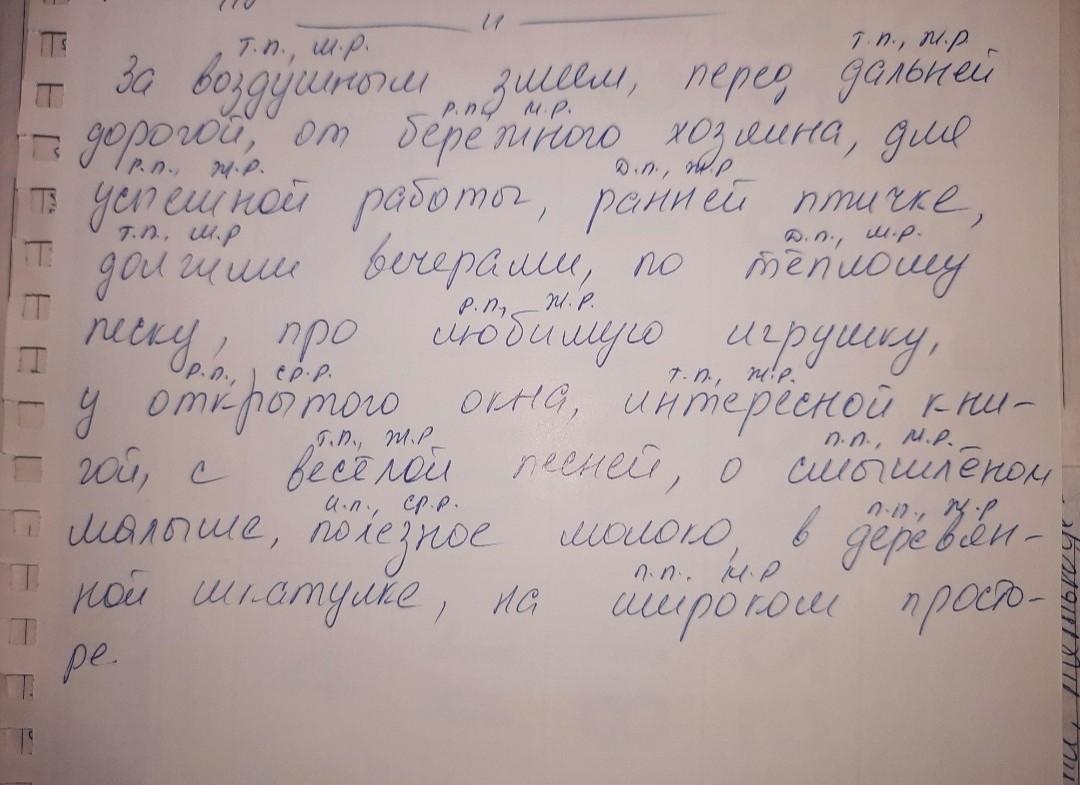 и
Т.п., М.р. Т.п., Ж.р.
За воздушным змеем, перед дальней
Р.п., М.р.
дорогой, от бережного хозяина, для
Р.п., Ж.р. Д.п., Ж.р
успешной работы, ранней птичке,
Т.п. М.р Д.п., М.р.
долгими вечерами, по тёплому
Р.п., Ж.р.
песку, про любимую игрушку,
Р.п., ср.р. Т.п., Ж.р.
у открытого окна, интересной кни-
Т.п., Ж.р П.п., М.р.
гой, с весёлой песней, о смышлёном
И.п., ср.р. П.п., Ж.р
малыше, полезное молоко, в деревян-
П.п. М.р
ной шкатулке, на широком просто-
ре.